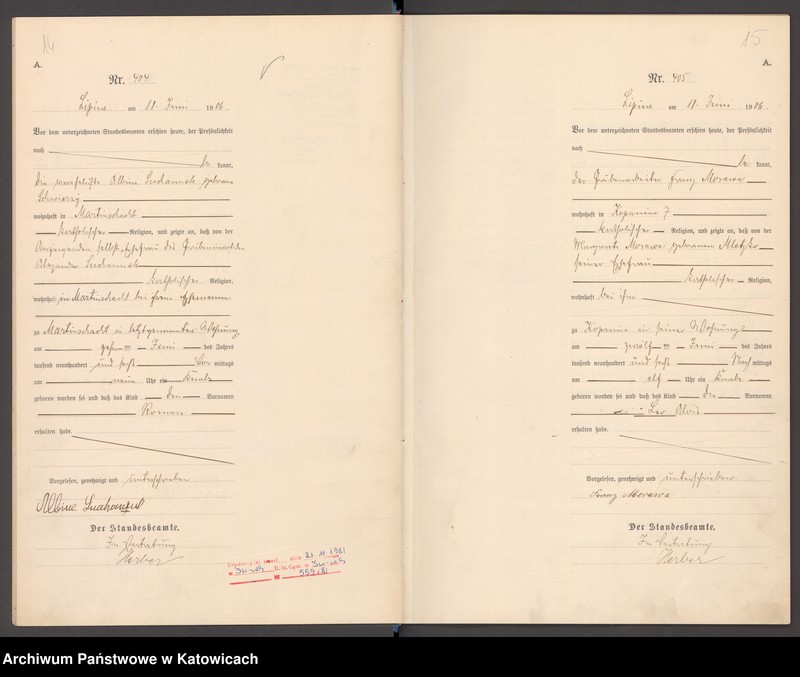 14
A.
Nr. 404.
Lipine am 11. Juni 1906.
Vor dem unterzeichneten Standesbeamten erschien heute, der Persönlichkeit
nach
be kannt,
die verehelichte Albine Suchannek geborene
wohnhaft in Martinschacht
katholischer Religion, und zeigte an, daß von der
Ehefrau des
Alexander Suchannek
katholischer Religion,
wohnhaft in Martinschacht bei ihrem Ehemanne
zu Martinschacht in letztgenannter Wohnung
am zehn ten Juni des Jahres
tausend neunhundert und sechs Vor mittags
um neun Uhr ein Knabe
geboren worden sei und daß das Kind den Vornamen
Roman
erhalten habe.
Vorgelesen, genehmigt und unterschrieben
Albine
Der Standesbeamte.
In Vertretung
Herbar
21 11 1981
559/81
15
A.
Nr. 405
Lipine am 11. Juni 1906.
Vor dem unterzeichneten Standesbeamten erschien heute, der Persönlichkeit
nach
be kannt,
der Grubenarbeiter Franz Morawa
wohnhaft in Kopanina 7
katholischer Religion, und zeigte an, daß von der
Margarete Morawa geborenen
seiner Ehefrau
katholischer Religion,
wohnhaft bei ihm
zu Kopanina in seiner Wohnung
am ten Juni des Jahres
tausend neunhundert und sechs Nach mittags
um elf Uhr ein Knabe
geboren worden sei und daß das Kind die Vornamen
Leo Alois
erhalten habe.
Vorgelesen, genehmigt und unterschrieben
Franz Morawa
Der Standesbeamte.
In Vertretung
Herbar
Archiwum Państwowe w Katowicach